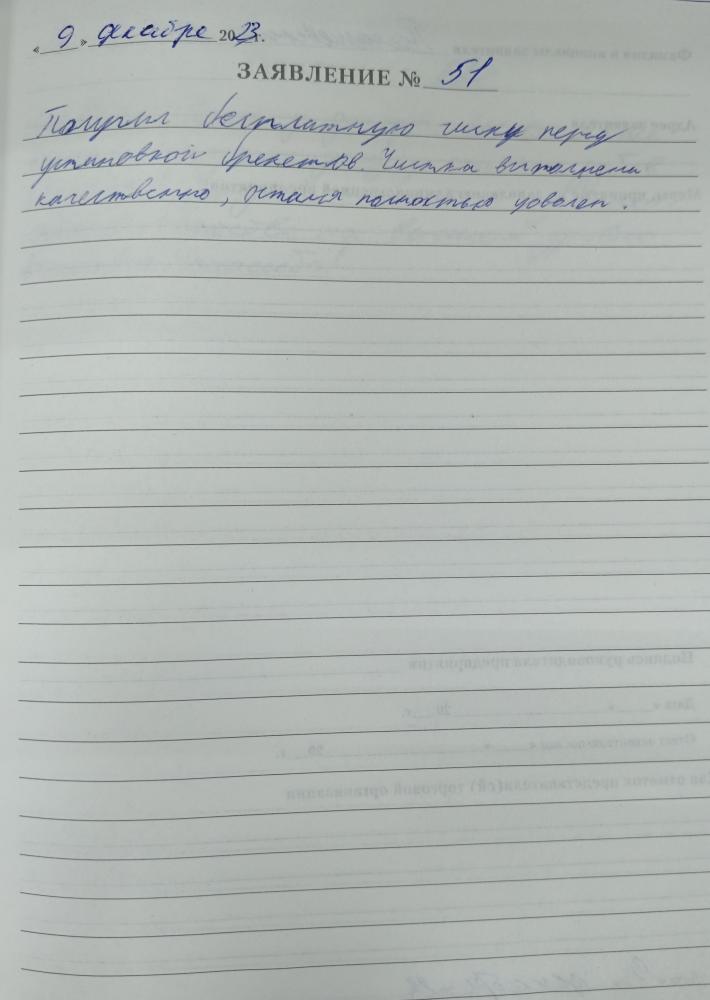 « 9 » декабря 2023 г.
ЗАЯВЛЕНИЕ № 51
Получил бесплатную чистку перед
установкой брекетов. Чистка выполнена
качественно, остался полностью доволен.